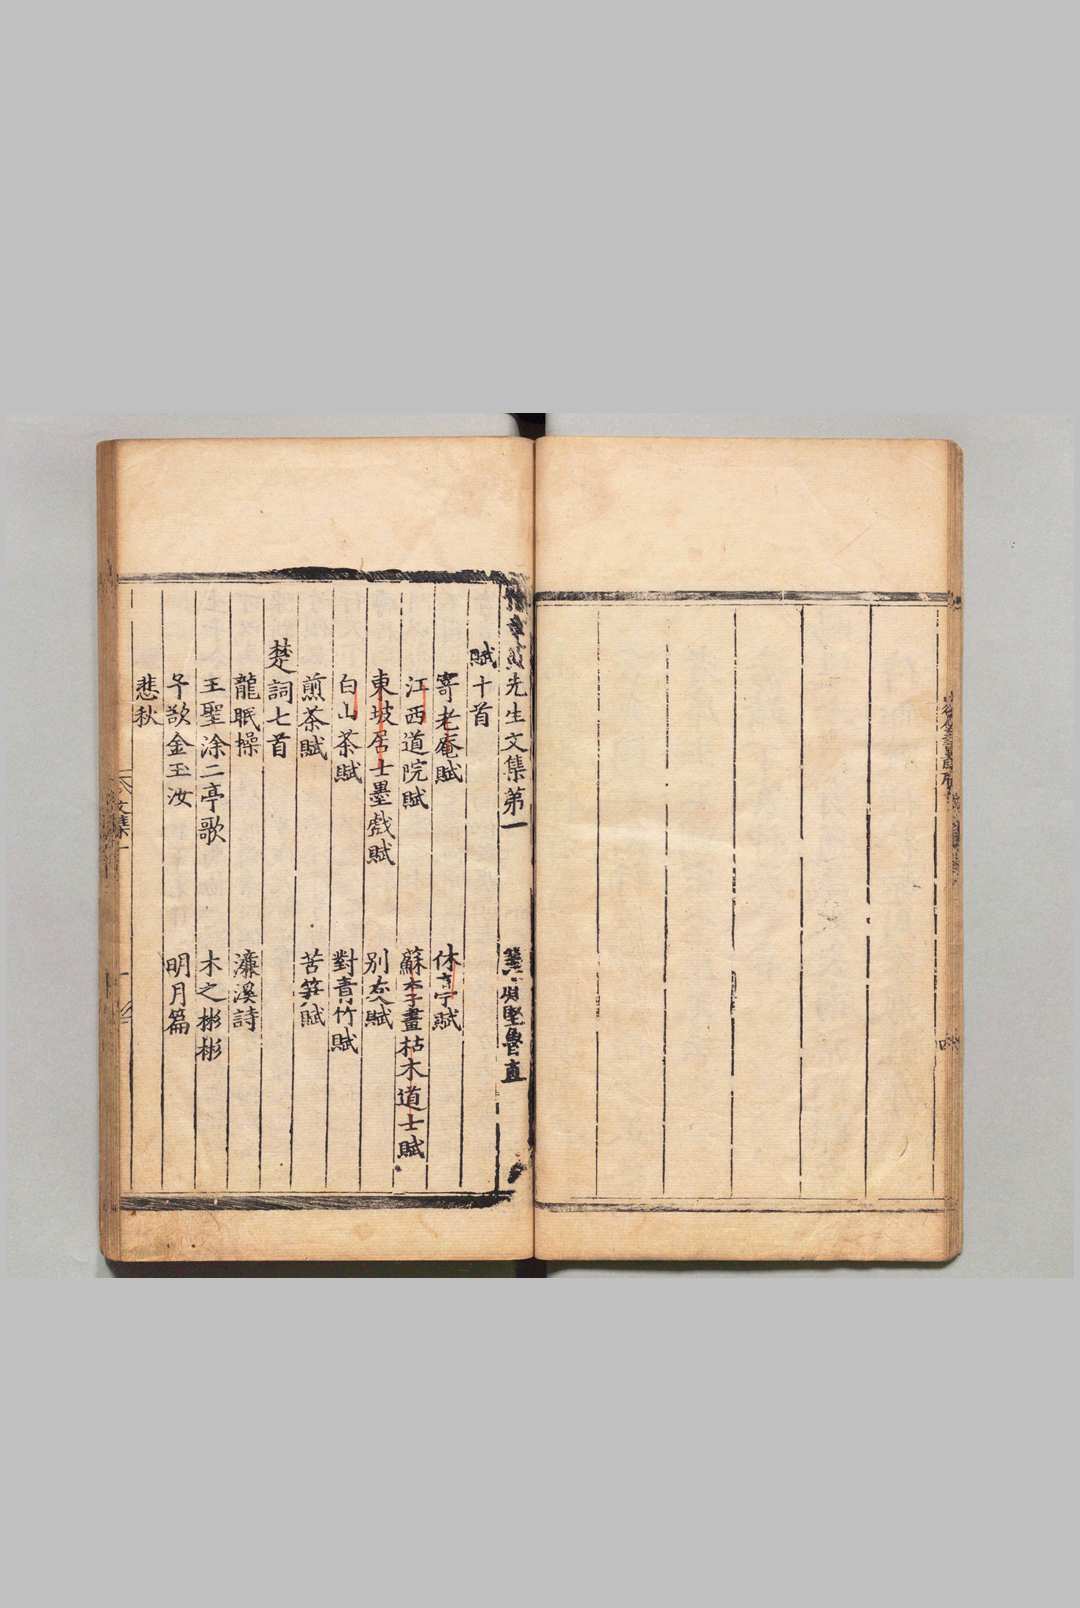 豫章黃先生文集第一　黃庭堅魯直
賦十首
寄老庵賦　休亭賦
江西道院賦　蘇李畫枯木道士賦
東坡居士墨戲賦　別友賦
白山茶賦　對青竹賦
煎茶賦　苦筍賦
楚詞七首
龍眠操　濂溪詩
王聖涂二亭歌　木之彬彬
予欲金玉汝　明月篇
悲秋
文集一